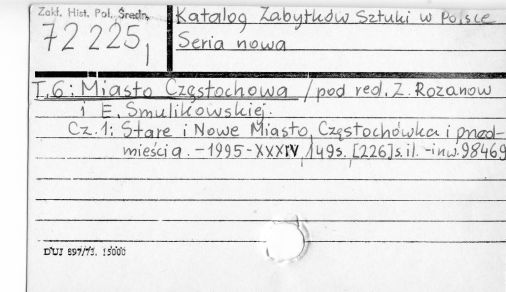 Zakł. Hist. Pol. Średn.
72 225,
Katalog Zabytków Sztuki w Polsce
Seria nowa
T.6: Miasto Częstochowa / pod red. Z. Rozanow
i E. Smulikowskiej.
Cz. 1: Stare i Nowe Miasto, Częstochówka i przed-
mieścia. - 1995 - XXXIV, 149s. [226]s. il. - inw. 98469
DUJ 897/75. 15000